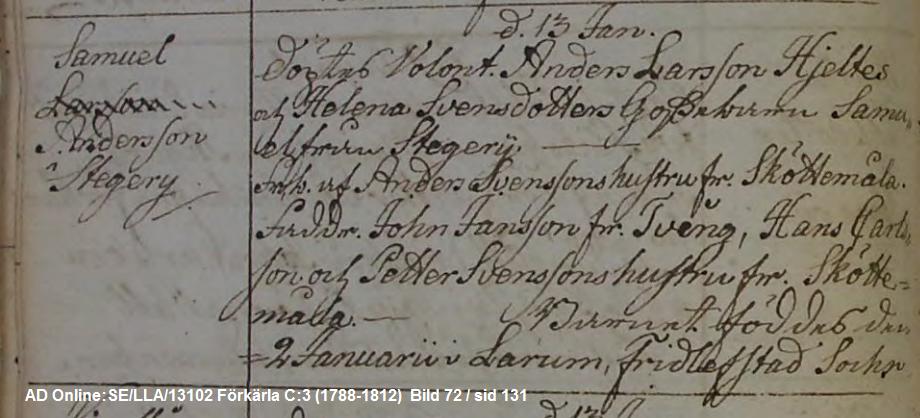 d. 13 Jan.
Samuel
Larsson
Andersson
i Stegery
Döptes Volont. Anders Larsson Hjeltes
och Helena Svensdotters Gossebarn Samu„
el från Stegery.
Frb. af Anders Svenssons hustru fr. Sköttemåla.
Faddr. John Jansson fr. Tveng, Hans Carls„
son och Petter Svenssons hustru fr. Skötte=
måla. — Barnet föddes den
=2 Januarii i Larum, Fridlefstad Sochn
AD Online: SE/LLA/13102 Förkärla C:3 (1788-1812) Bild 72 / sid 131